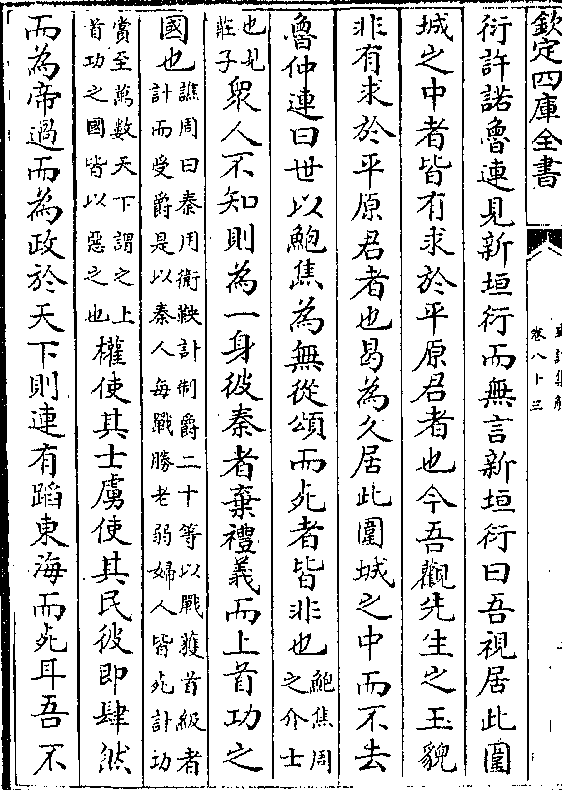 欽定四庫全書
史記集解
卷八十三
衍許諾魯連見新垣衍而無言新垣衍曰吾視居此圍
城之中者皆有求於平原君者也今吾觀先生之玉貌
非有求於平原君者也曷為久居此圍城之中而不去
魯仲連曰世以鮑焦為無從頌而死者皆非也鮑焦周
之介士
也見
莊子衆人不知則為一身彼秦者棄禮義而上首功之
國也譙周曰秦用衛鞅計制爵二十等以戰獲首級者
計而受爵是以秦人每戰勝老弱婦人皆死計功
賞至萬數天下謂之上
首功之國皆以惡之也權使其士虜使其民彼即肆然
而為帝過而為政於天下則連有蹈東海而死耳吾不